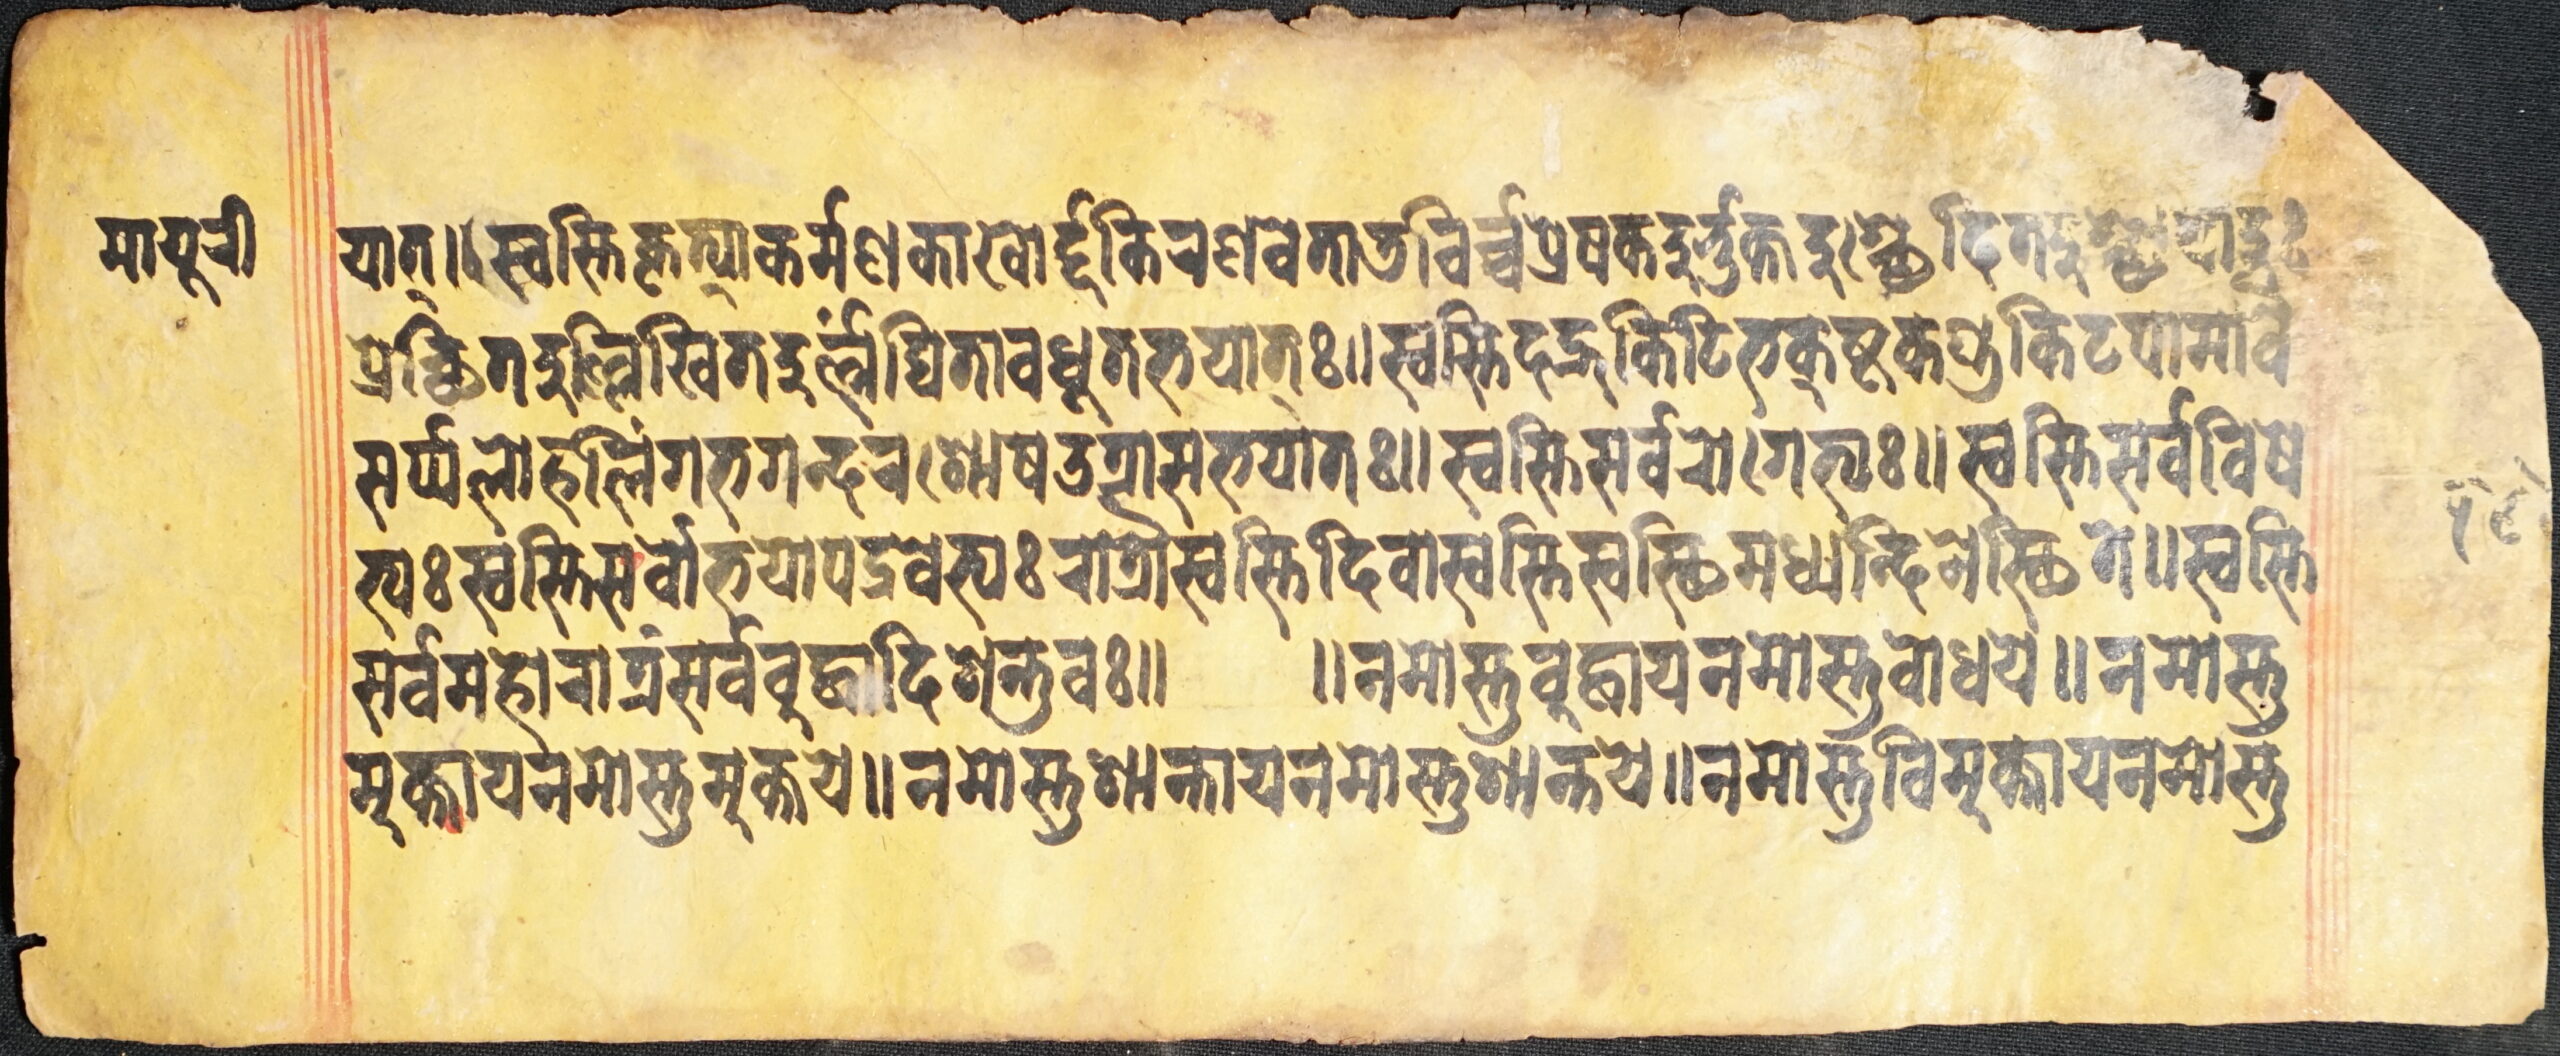 मायूरी
यात्॥स्वस्तिकृत्याकर्मणकाखोर्द्दकिरणवेताडविर्च्चप्रेषकदुर्भुक्तदुश्छर्दितदुश्छायादुः
प्रेक्षितदुल्लिखितदुर्लंघितावधूतभयातः॥स्वस्तिदद्रुकिटिभकुष्टकण्डुकिटपामावै
सर्प्पलोहलिंगभगन्दरशोषउत्रासभयातः॥स्वस्तिसर्वरोगेभ्यः॥स्वस्तिसर्वविषे
भ्यःस्वस्तिसर्वोभयोपद्रवेभ्यःरात्रौस्वस्तिदिवास्वस्तिस्वस्तिमध्यन्दिनेस्थिते॥स्वस्ति
सर्वमहोरात्रंसर्वबुद्धादिशन्तुवः॥ ॥नमोस्तुबुद्धायनमोस्तुबोधये॥नमोस्तु
मुक्तायनमोस्तुमुक्तये॥नमोस्तुशान्तायनमोस्तुशान्तये॥नमोस्तुविमुक्तायनमोस्तु